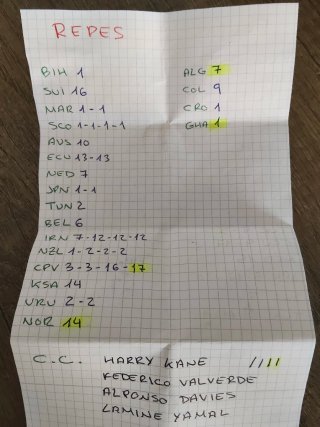 REPES
BIH 1
SUI 16
MAR 1-1
SCO 1-1-1-1
AUS 10
ECU 13-13
NED 7
JPN 1-1
TUN 2
BEL 6
IRN 7-12-12-12
NZL 1-2-2-2
CPV 3-3-16-17
KSA 14
URU 2-2
NOR 14
ALG 7
COL 9
CRO 1
GHA 1
C.C. HARRY KANE ////
FEDERICO VALVERDE
ALPONSO DAVIES
LAMINE YAMAL